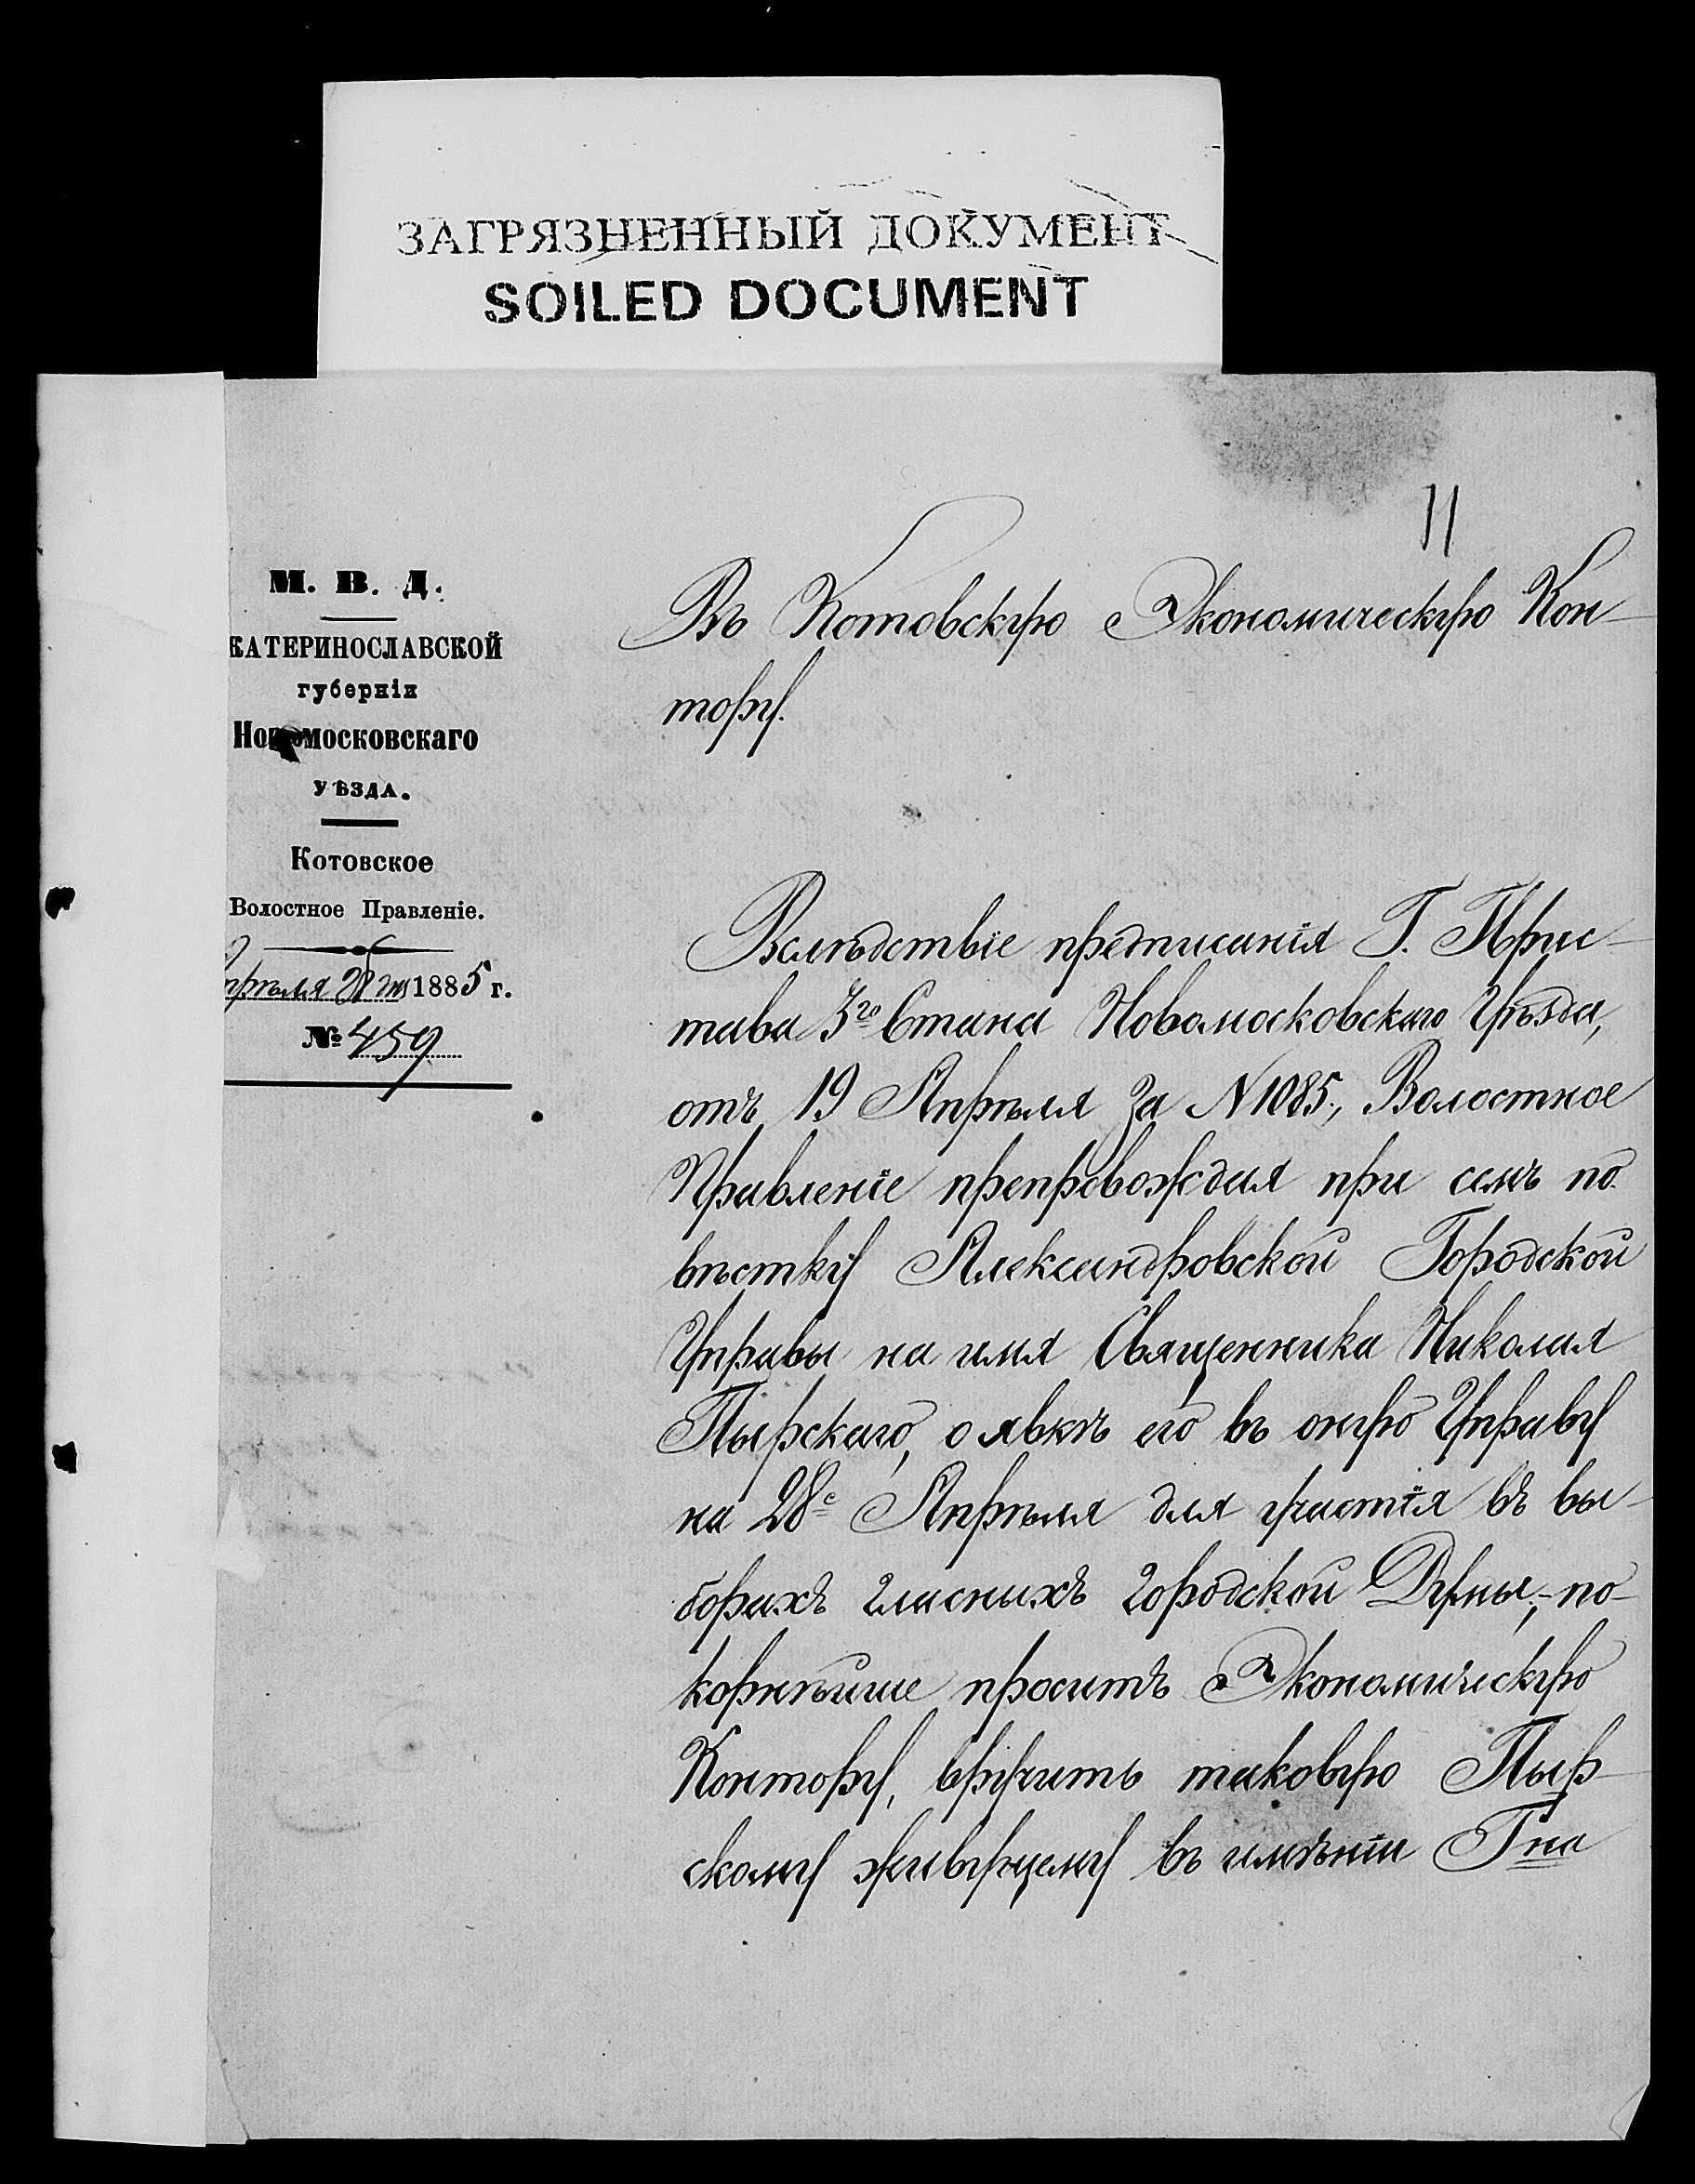 ЗАГРЯЗНЕННЫЙ ДОКУМЕНТ
SOILED DOCUMENT
11
М. В. Д.
КАТЕРИНОСЛАВСКОЙ
губерніи
Новомосковскаго
УѢЗДА.
Котовское
Волостное Правленіе.
прѣля 1885 г.
№ 459
Въ Котовскую Экономическую Кон-
тору.
Вслѣдствіе предписанія Г. Прис-
тава 3го Стана Новомосковскаго Уѣзда,
отъ 19 Апрѣля за N 1085, Волостное
Правленіе препровождая при семъ по
вѣстку Александровской Городской
Управы на имя Священника Николая
Пырскаго, о явкѣ его въ оную Управу
на 28е Апрѣля для участія въ вы-
борахъ гласныхъ городской Думы,- по-
корнѣише проситъ Экономическую
Контору, вручить таковую Пыр-
скому живущему въ имѣніи Гна